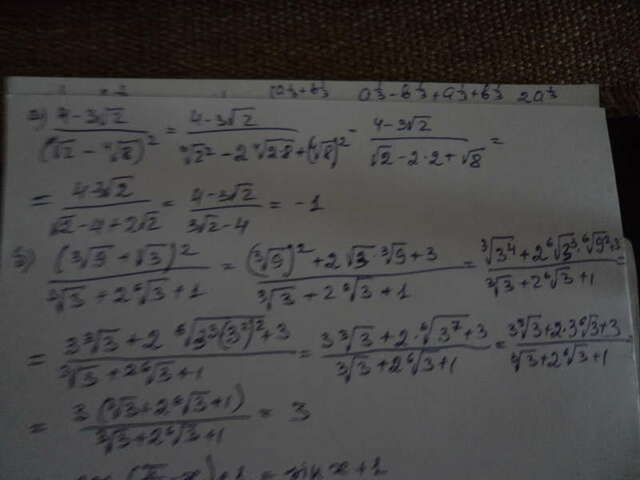 a^{1/3}-b^{1/3}+a^{1/3}+b^{1/3} 2a^{1/3}
a) \frac{4-3\sqrt{2}}{(\sqrt[4]{2}-\sqrt[4]{8})^2} = \frac{4-3\sqrt{2}}{\sqrt[4]{2^2}-2\sqrt[4]{2\cdot8}+(\sqrt[4]{8})^2} = \frac{4-3\sqrt{2}}{\sqrt{2}-2\cdot2+\sqrt{8}} =
= \frac{4-3\sqrt{2}}{\sqrt{2}-4+2\sqrt{2}} = \frac{4-3\sqrt{2}}{3\sqrt{2}-4} = -1
б) \frac{(\sqrt[3]{9}+\sqrt{3})^2}{\sqrt[3]{3}+2\sqrt[6]{3}+1} = \frac{(\sqrt[3]{9})^2+2\sqrt{3}\cdot\sqrt[3]{9}+3}{\sqrt[3]{3}+2\sqrt[6]{3}+1} = \frac{\sqrt[3]{3^4}+2\sqrt[6]{3^3}\cdot\sqrt[6]{9^2}+3}{\sqrt[3]{3}+2\sqrt[6]{3}+1} =
= \frac{3\sqrt[3]{3}+2\sqrt[6]{3^3(3^2)^2}+3}{\sqrt[3]{3}+2\sqrt[6]{3}+1} = \frac{3\sqrt[3]{3}+2\cdot\sqrt[6]{3^7}+3}{\sqrt[3]{3}+2\sqrt[6]{3}+1} = \frac{3\sqrt[3]{3}+2\cdot3\sqrt[6]{3}+3}{\sqrt[3]{3}+2\sqrt[6]{3}+1}
= \frac{3(\sqrt[3]{3}+2\sqrt[6]{3}+1)}{\sqrt[3]{3}+2\sqrt[6]{3}+1} = 3
= sin x+1